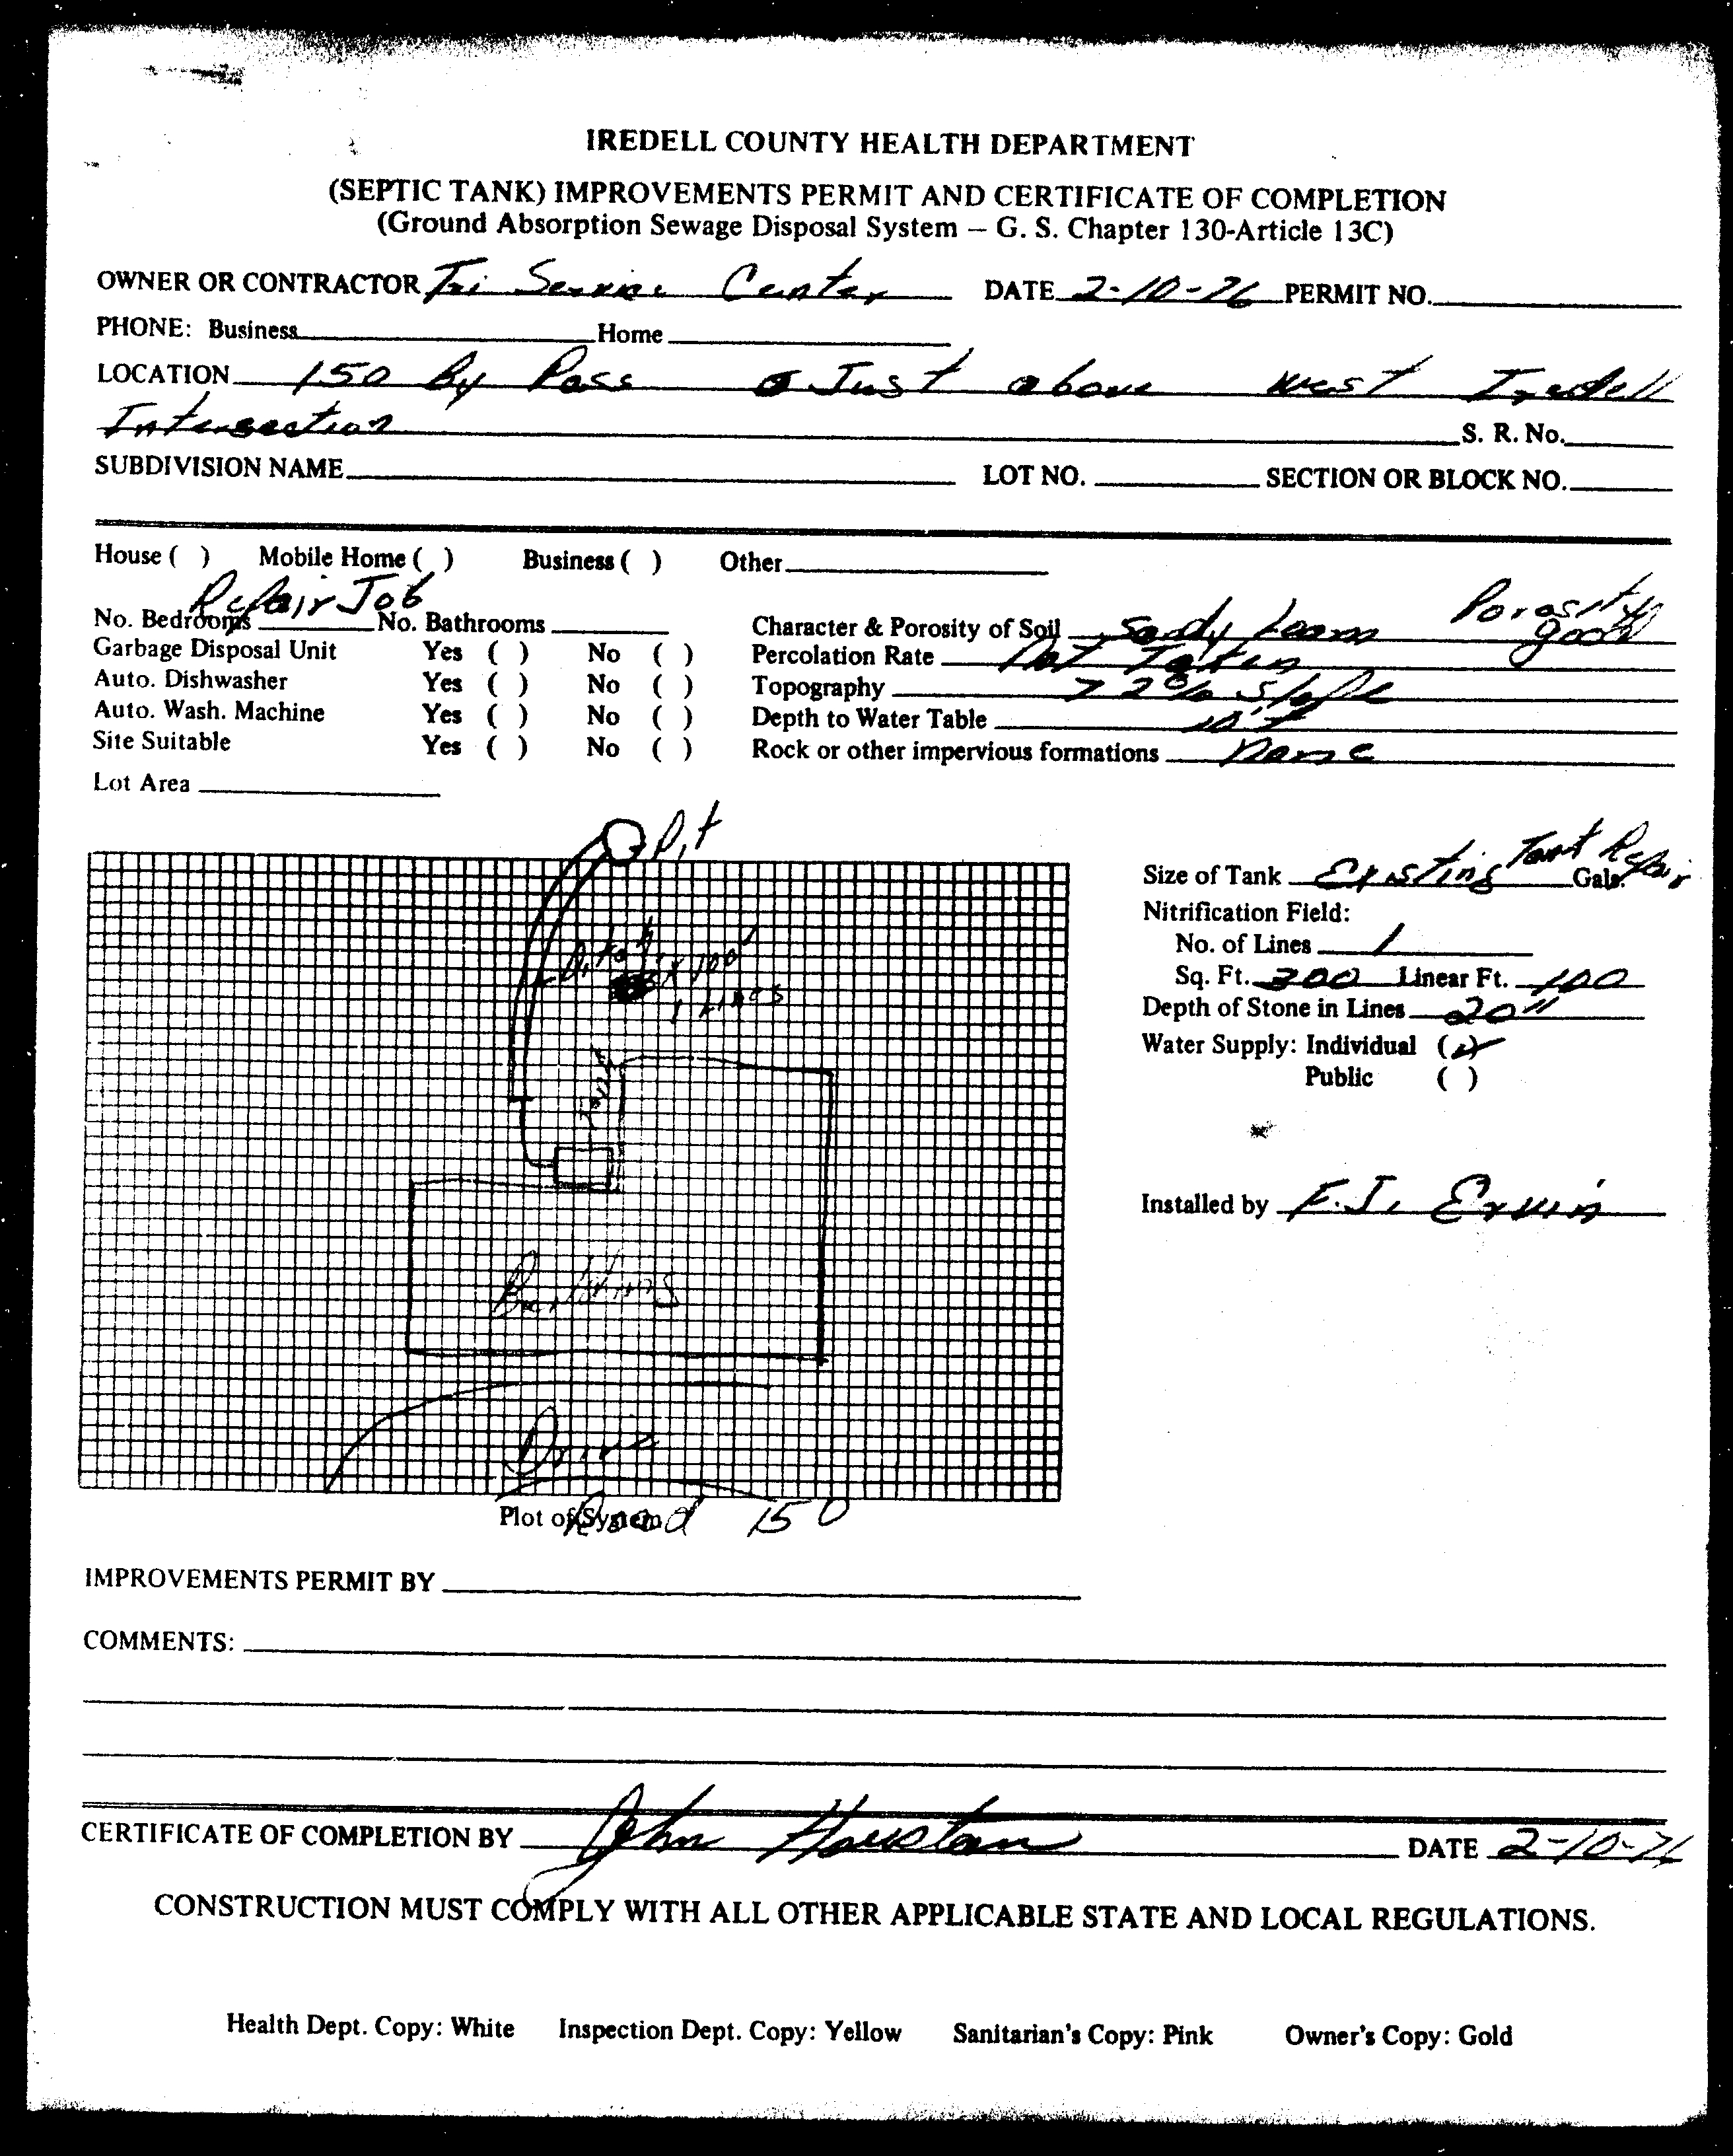 IREDELL COUNTY HEALTH DEPARTMENT
(SEPTIC TANK) IMPROVEMENTS PERMIT AND CERTIFICATE OF COMPLETION
(Ground Absorption Sewage Disposal System – G. S. Chapter 130-Article 13C)
OWNER OR CONTRACTOR Tri Service Center DATE 2-10-76 PERMIT NO.
PHONE: Business Home
LOCATION 150 By Pass Just above West Iredell
Intersection S. R. No.
SUBDIVISION NAME LOT NO. SECTION OR BLOCK NO.
House ( ) Mobile Home ( ) Business ( ) Other
Repair Job
No. Bedrooms No. Bathrooms
Garbage Disposal Unit Yes ( ) No ( )
Auto. Dishwasher Yes ( ) No ( )
Auto. Wash. Machine Yes ( ) No ( )
Site Suitable Yes ( ) No ( )
Lot Area
Character & Porosity of Soil Sandy Loam Porosity good
Percolation Rate Not Taken
Topography > 2% Slope
Depth to Water Table 10'+
Rock or other impervious formations none
Pit
Ditch
x 100'
1 Lines
Building
Drive
Plot of System
Road 150
Size of Tank Existing Tank Repair Gals.
Nitrification Field:
No. of Lines 1
Sq. Ft. 300 Linear Ft. 100
Depth of Stone in Lines 20"
Water Supply: Individual (✓)
Public ( )
Installed by F.J. Ervin
IMPROVEMENTS PERMIT BY
COMMENTS:
CERTIFICATE OF COMPLETION BY John Houston DATE 2-10-76
CONSTRUCTION MUST COMPLY WITH ALL OTHER APPLICABLE STATE AND LOCAL REGULATIONS.
Health Dept. Copy: White Inspection Dept. Copy: Yellow Sanitarian's Copy: Pink Owner's Copy: Gold